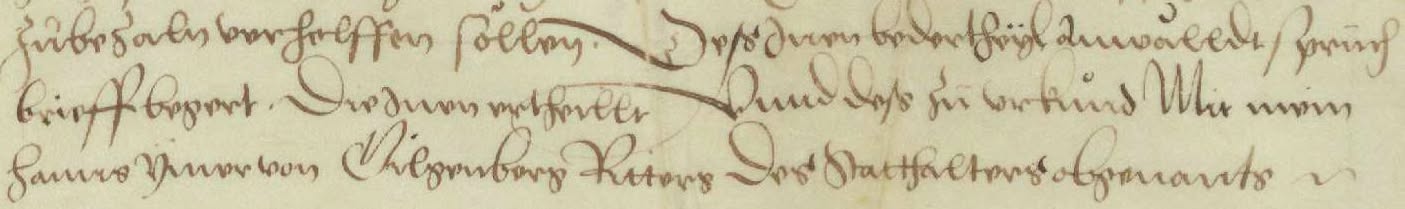 zůbezaln verhelffen söllen. Dess Inen bedertheyl Anwälldt sprüch
brieff begert. Die Inen ertheillt Vnnd dess zů vrkund Mit mein
hanns ymer von Gilgenberg Ritters des Statthalters obgenants